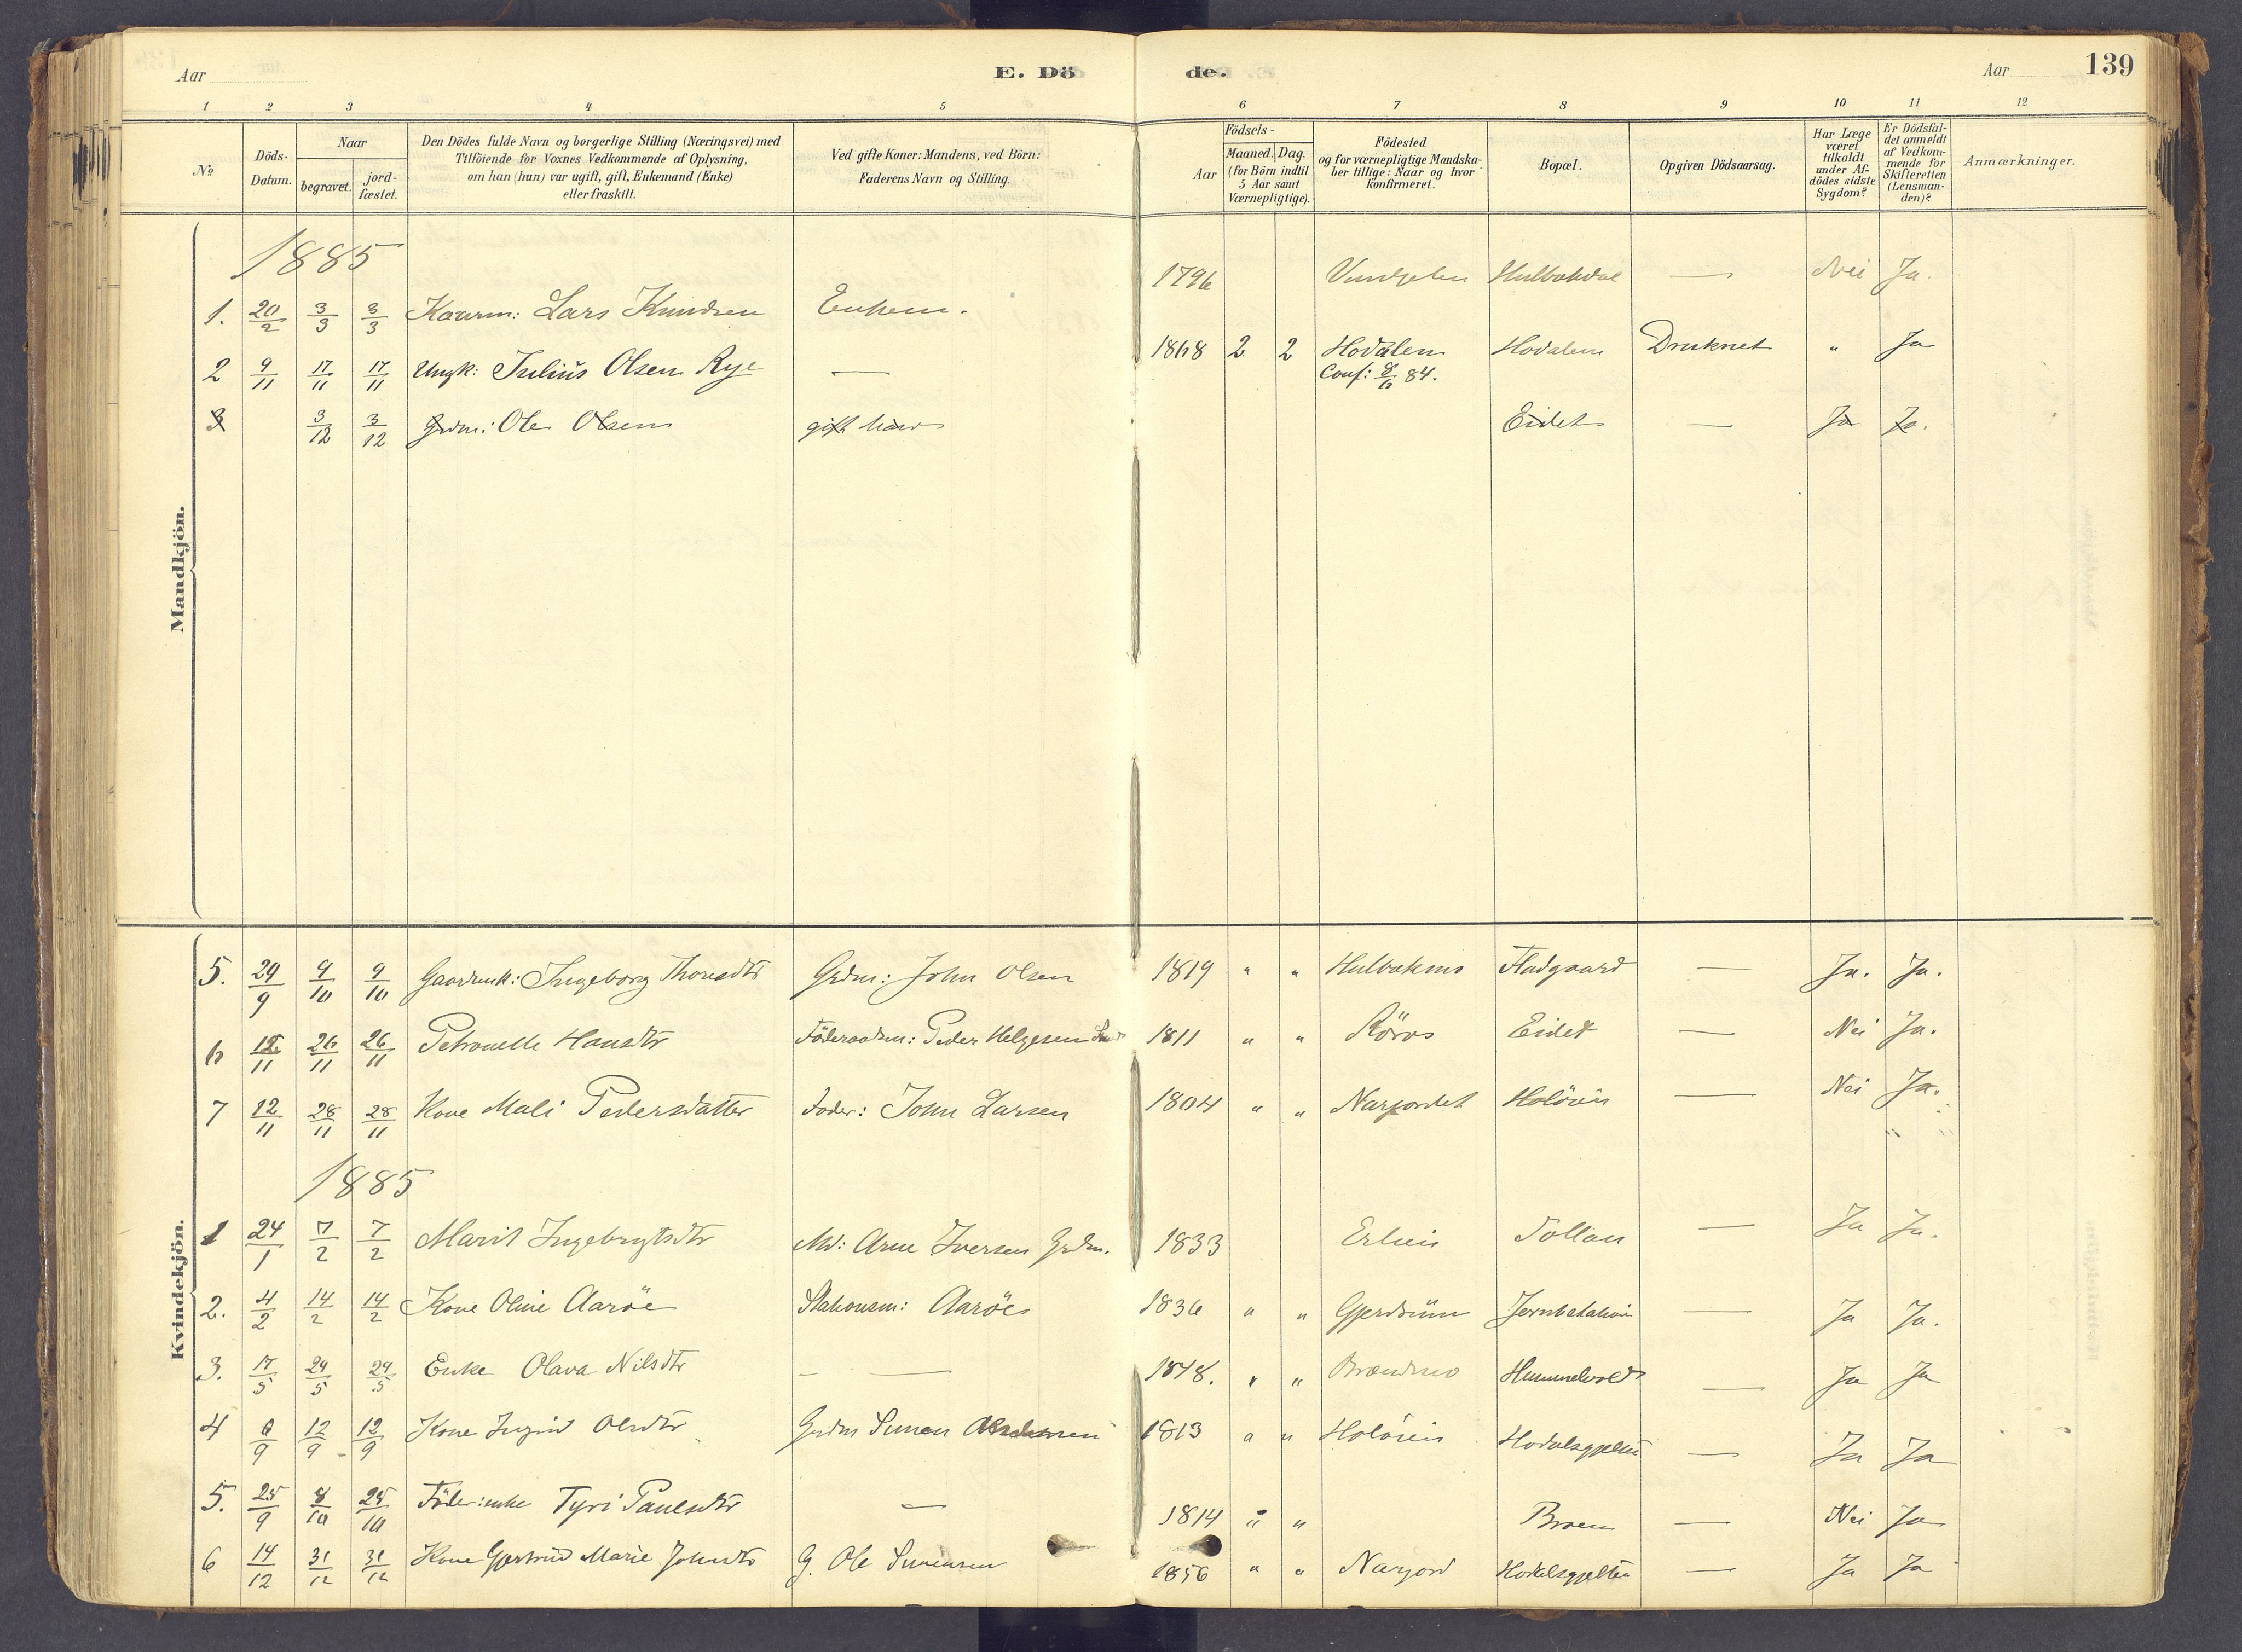 Aar
E. Dö
de.
Aar
139
1 2 3 4 5 6 7 8 9 10 11 12
№
Döds-
Datum.
Naar
begravet.
jord-
fæstet.
Den Dödes fulde Navn og borgerlige Stilling (Næringsvei) med
Tilföiende for Voxnes Vedkommende af Oplysning,
om han (hun) var ugift, gift, Enkemand (Enke)
eller fraskilt.
Ved gifte Koner: Mandens, ved Börn:
Faderens Navn og Stilling.
Födsels-
Aar
Maaned. Dag.
(for Börn indtil
5 Aar samt
Værnepligtige).
Födested
og for værnepligtige Mandska-
ber tillige: Naar og hvor
konfirmeret.
Bopæl.
Opgiven Dödsaarsag.
Har Læge
været
tilkaldt
under Af-
dödes sidste
Sygdom?
Er Dödsfal-
det anmeldt
af Vedkom-
mende for
Skifteretten
(Lensman-
den)?
Anmærkninger.
Mandkjön.
1885
1. 20/2 3/3 3/3 Kaarm: Lars Knudsen Enkem. 1796 Hulbakdal — Nei Ja.
2 9/11 17/11 17/11 Ungk: Julius Olsen Rye — 1868 2 2 Hodalen Hodalen Druknet " Ja
Conf: 8/6 84.
3 3/12 3/12 Grdm: Ole Olsen gift Eidet — Ja Ja.
Kvindekjön.
5. 29/9 9/10 9/10 Gaardmk: Ingeborg Thoresdtr Grdm: John Olsen 1819 " " Hulbakmo Fladgaard — Ja. Ja.
6 12/11 26/11 26/11 Petronelle Hansdtr Föderaadsm: Peder Helgesen 1811 " " Röros Eidet — Nei Ja.
7 12/11 28/11 28/11 Kone Mali Pedersdatter Föder: John Larsen 1804 " " Narjordet Holöien — Nei Ja.
1885
1 24/1 7/2 7/2 Marit Ingebrigtsdtr Md: Arne Iversen Grdm. 1833 Erlien Tollan — Ja Ja.
2. 4/2 14/2 14/2 Kone Oline Aaröe Stationsm: Aaröes 1836 " " Gjerdrum Jernbstation — Ja Ja.
3. 17/5 29/5 29/5 Enke Olava Nilsdtr — — 1848. " " Brændmo Hummelvold — Ja Ja
4 6/9 12/9 12/9 Kone Ingrid Olsdtr Grdm Simen 1813 " " Holöien Hodalsgjelten — Ja Ja
5. 25/9 8/10 25/10 Föder:enke Tyri Paulsdtr — 1814 " " Broen — Nei Ja
6 14/12 31/12 31/12 Kone Gjertrud Marie Johnsdtr G. Ole Simensen 1856 " " Narjord Hodalsgjelten — Ja Ja